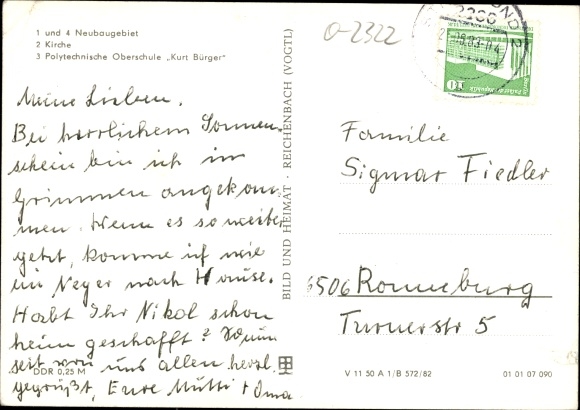 1 und 4 Neubaugebiet
2 Kirche
3 Polytechnische Oberschule „Kurt Bürger"
Meine Lieben,
Bei herrlichem Sonnen-
schein bin ich in
Grimmen angekom-
men. Wenn es so weiter
geht, komme ich wie
ein Neger nach Hause.
Habt Ihr Nikol schon
heim geschafft?
seit von uns allen herzl.
gegrüßt, Eure Mutti + Oma
DDR 0,25 M
BILD UND HEIMAT · REICHENBACH (VOGTL)
O-2322
2300
10
Familie
Sigmar Fiedler
6506 Ronneburg
Turnerstr 5
V 11 50 A 1/B 572/82
01 01 07 090